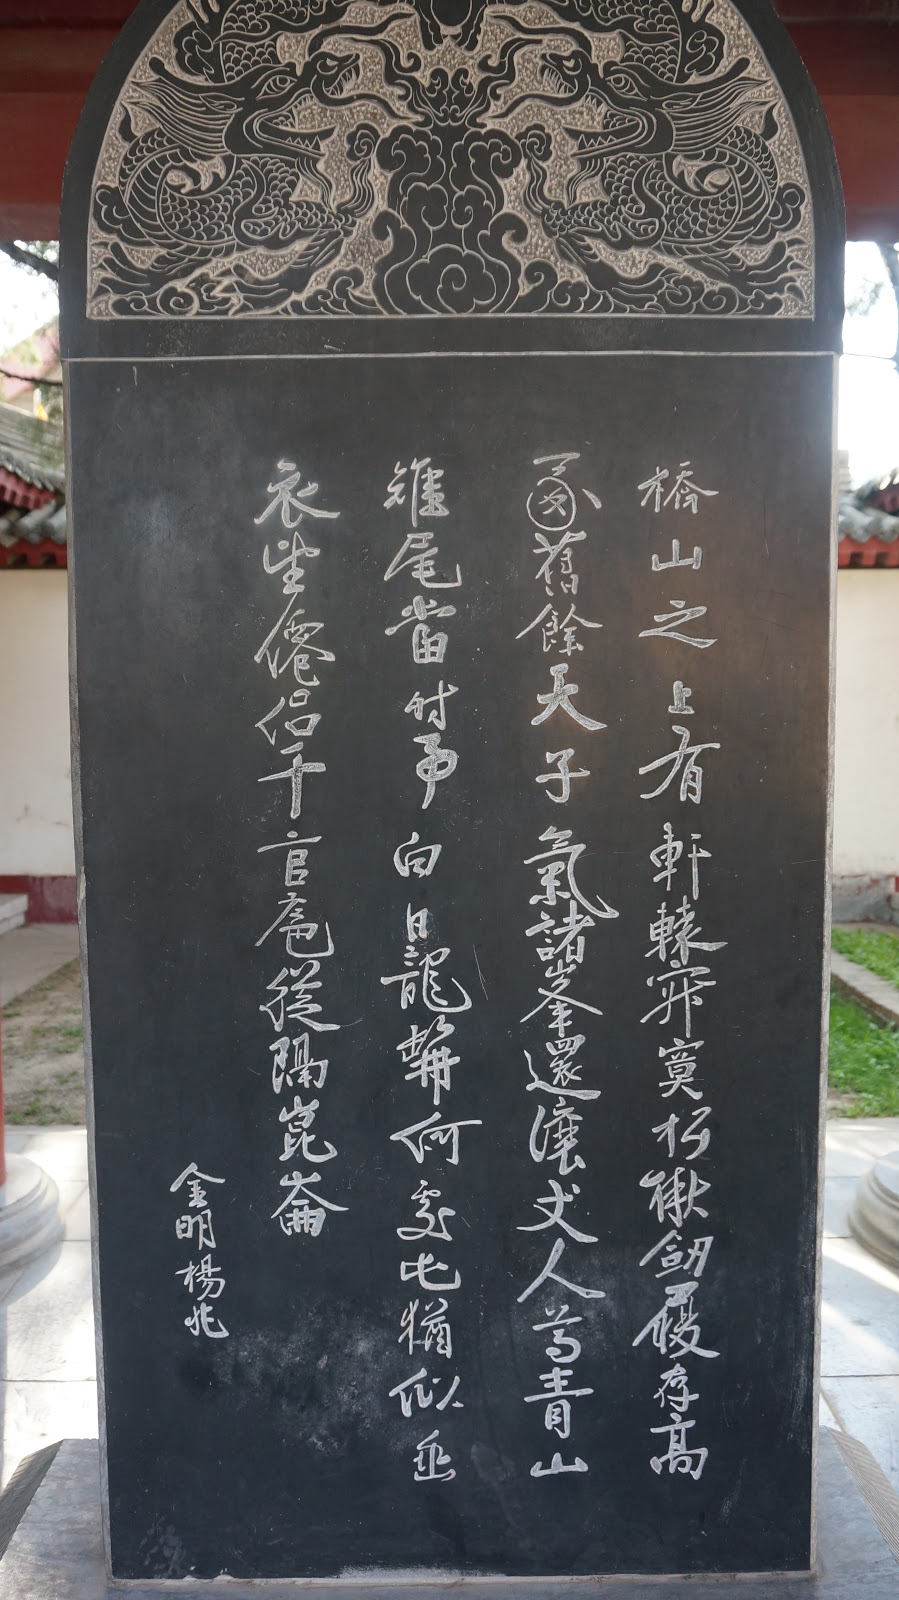 橋山之上有軒轅寂寞杉楸劍履存高
舊餘天子氣諸峯還讓丈人尊青山
雉尾當時 白日龍髯何處屯猶似垂
衣望僊侶千官扈從隔崑崙
金明楊兆